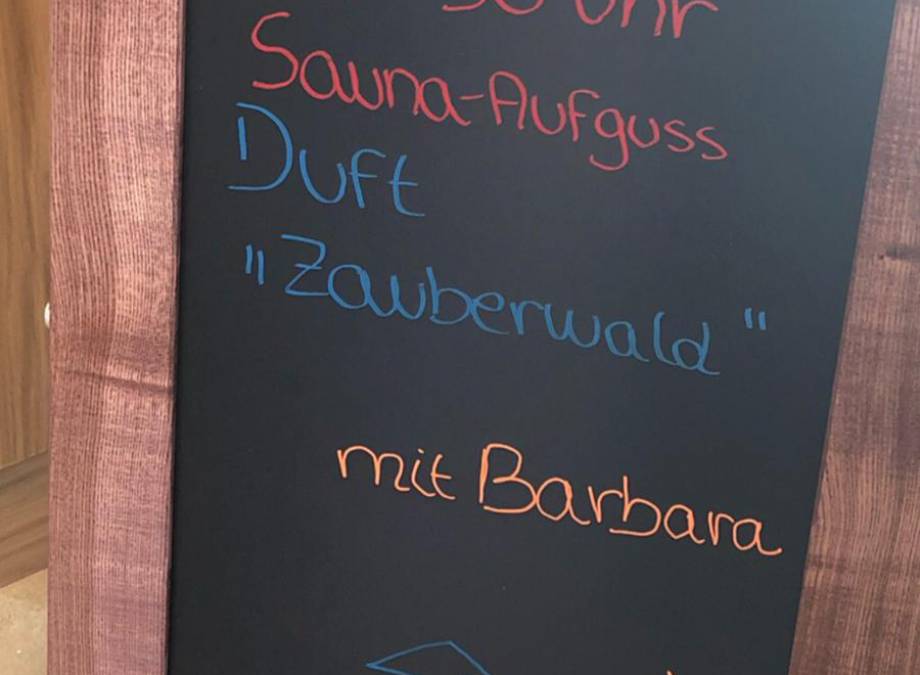 Uhr
Sauna-Aufguss
Duft
„Zauberwald“
mit Barbara